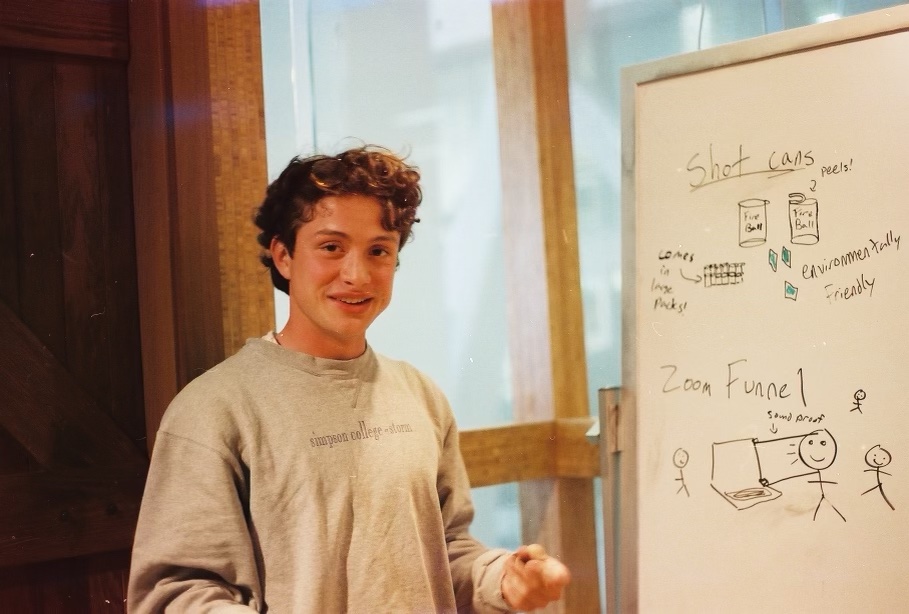 simpson college - storm
Shot cans
peels!
Fire
Ball
Fire
Ball
comes
in
large
packs!
environmentally
Friendly
Zoom Funnel
Sound proof